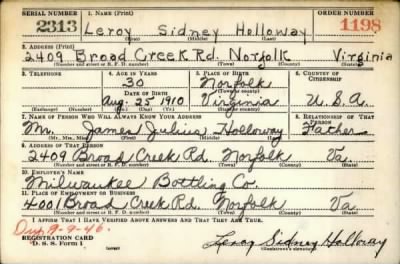 SERIAL NUMBER 1. NAME (Print) ORDER NUMBER
2313 Leroy Sidney Holloway 1198
(First) (Middle) (Last)
2. ADDRESS (Print)
2409 Broad Creek Rd. Norfolk Virginia
(Number and street or R. F. D. number) (Town) (County) (State)
3. TELEPHONE 4. AGE IN YEARS 5. PLACE OF BIRTH 6. COUNTRY OF CITIZENSHIP
30 Norfolk
DATE OF BIRTH (Town or county)
Aug. 25 1910 Virginia U.S.A.
(Exchange) (Number) (Mo.) (Day) (Yr.) (State or country)
7. NAME OF PERSON WHO WILL ALWAYS KNOW YOUR ADDRESS 8. RELATIONSHIP OF THAT PERSON
Mr. James Julius Holloway Father
(Mr., Mrs., Miss) (First) (Middle) (Last)
9. ADDRESS OF THAT PERSON
2409 Broad Creek Rd. Norfolk Va.
(Number and street or R. F. D. number) (Town) (County) (State)
10. EMPLOYER'S NAME
Milwaukee Bottling Co.
11. PLACE OF EMPLOYMENT OR BUSINESS
4001 Broad Creek Rd. Norfolk Va
(Number and street or R. F. D. number) (Town) (County) (State)
I AFFIRM THAT I HAVE VERIFIED ABOVE ANSWERS AND THAT THEY ARE TRUE.
REGISTRATION CARD
D. S. S. Form 1 Leroy Sidney Holloway
(Registrant's signature)